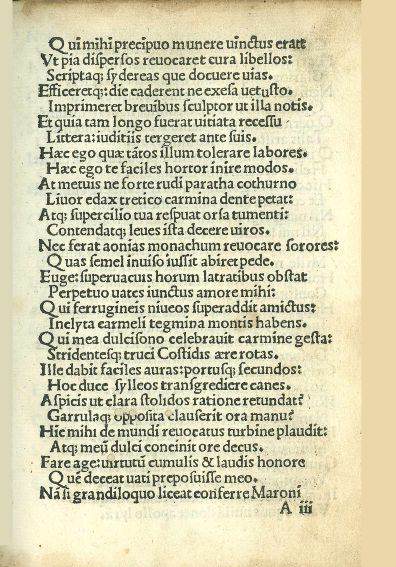 Qui mihi precipuo munere uinctus erat⁊
Vt pia dispersos reuocaret cura libellos:
Scriptaq; sydereas que docuere uias.
Efficeretq; : die caderent ne exesa uetusto.
Imprimeret breuibus sculptor ut illa notis.
Et quia tam longo fuerat uitiata recessu
Littera: iuditiis tergeret ante suis.
Hæc ego quæ tātos illum tolerare labores.
Hæc ego te faciles hortor inire modos.
At metuis ne forte rudi paratha cothurno
Liuor edax tretico carmina dente petat:
Atq; supercilio tua respuat orsa tumenti:
Contendatq; leues ista decere uiros.
Nec ferat aonias monachum reuocare sorores:
Quas semel inuiso iussit abire pede.
Euge: superuacuis horum latratibus obstat
Perpetuo uates iunctus amore mihi:
Qui ferrugineis niueos superaddit amictus:
Inclyta carmeli tegmina montis habens.
Qui mea dulcisono celebrauit carmine gesta:
Stridentesq; truci Costidis ære rotas.
Ille dabit faciles auras: portusq; secundos:
Hoc duce sylleos transgrediere canes.
Aspicis ut clara stolidos ratione retundat⁊
Garrulaq; opposita clauserit ora manu⁊
Hic mihi de mundi reuocatus turbine plaudit:
Atq; meū dulci concinit ore decus.
Fare age: uirtutū cumulis & laudis honore
Quē deceat uati preposuisse meo.
Nā si grandiloquo liceat conferre Maroni
A iii